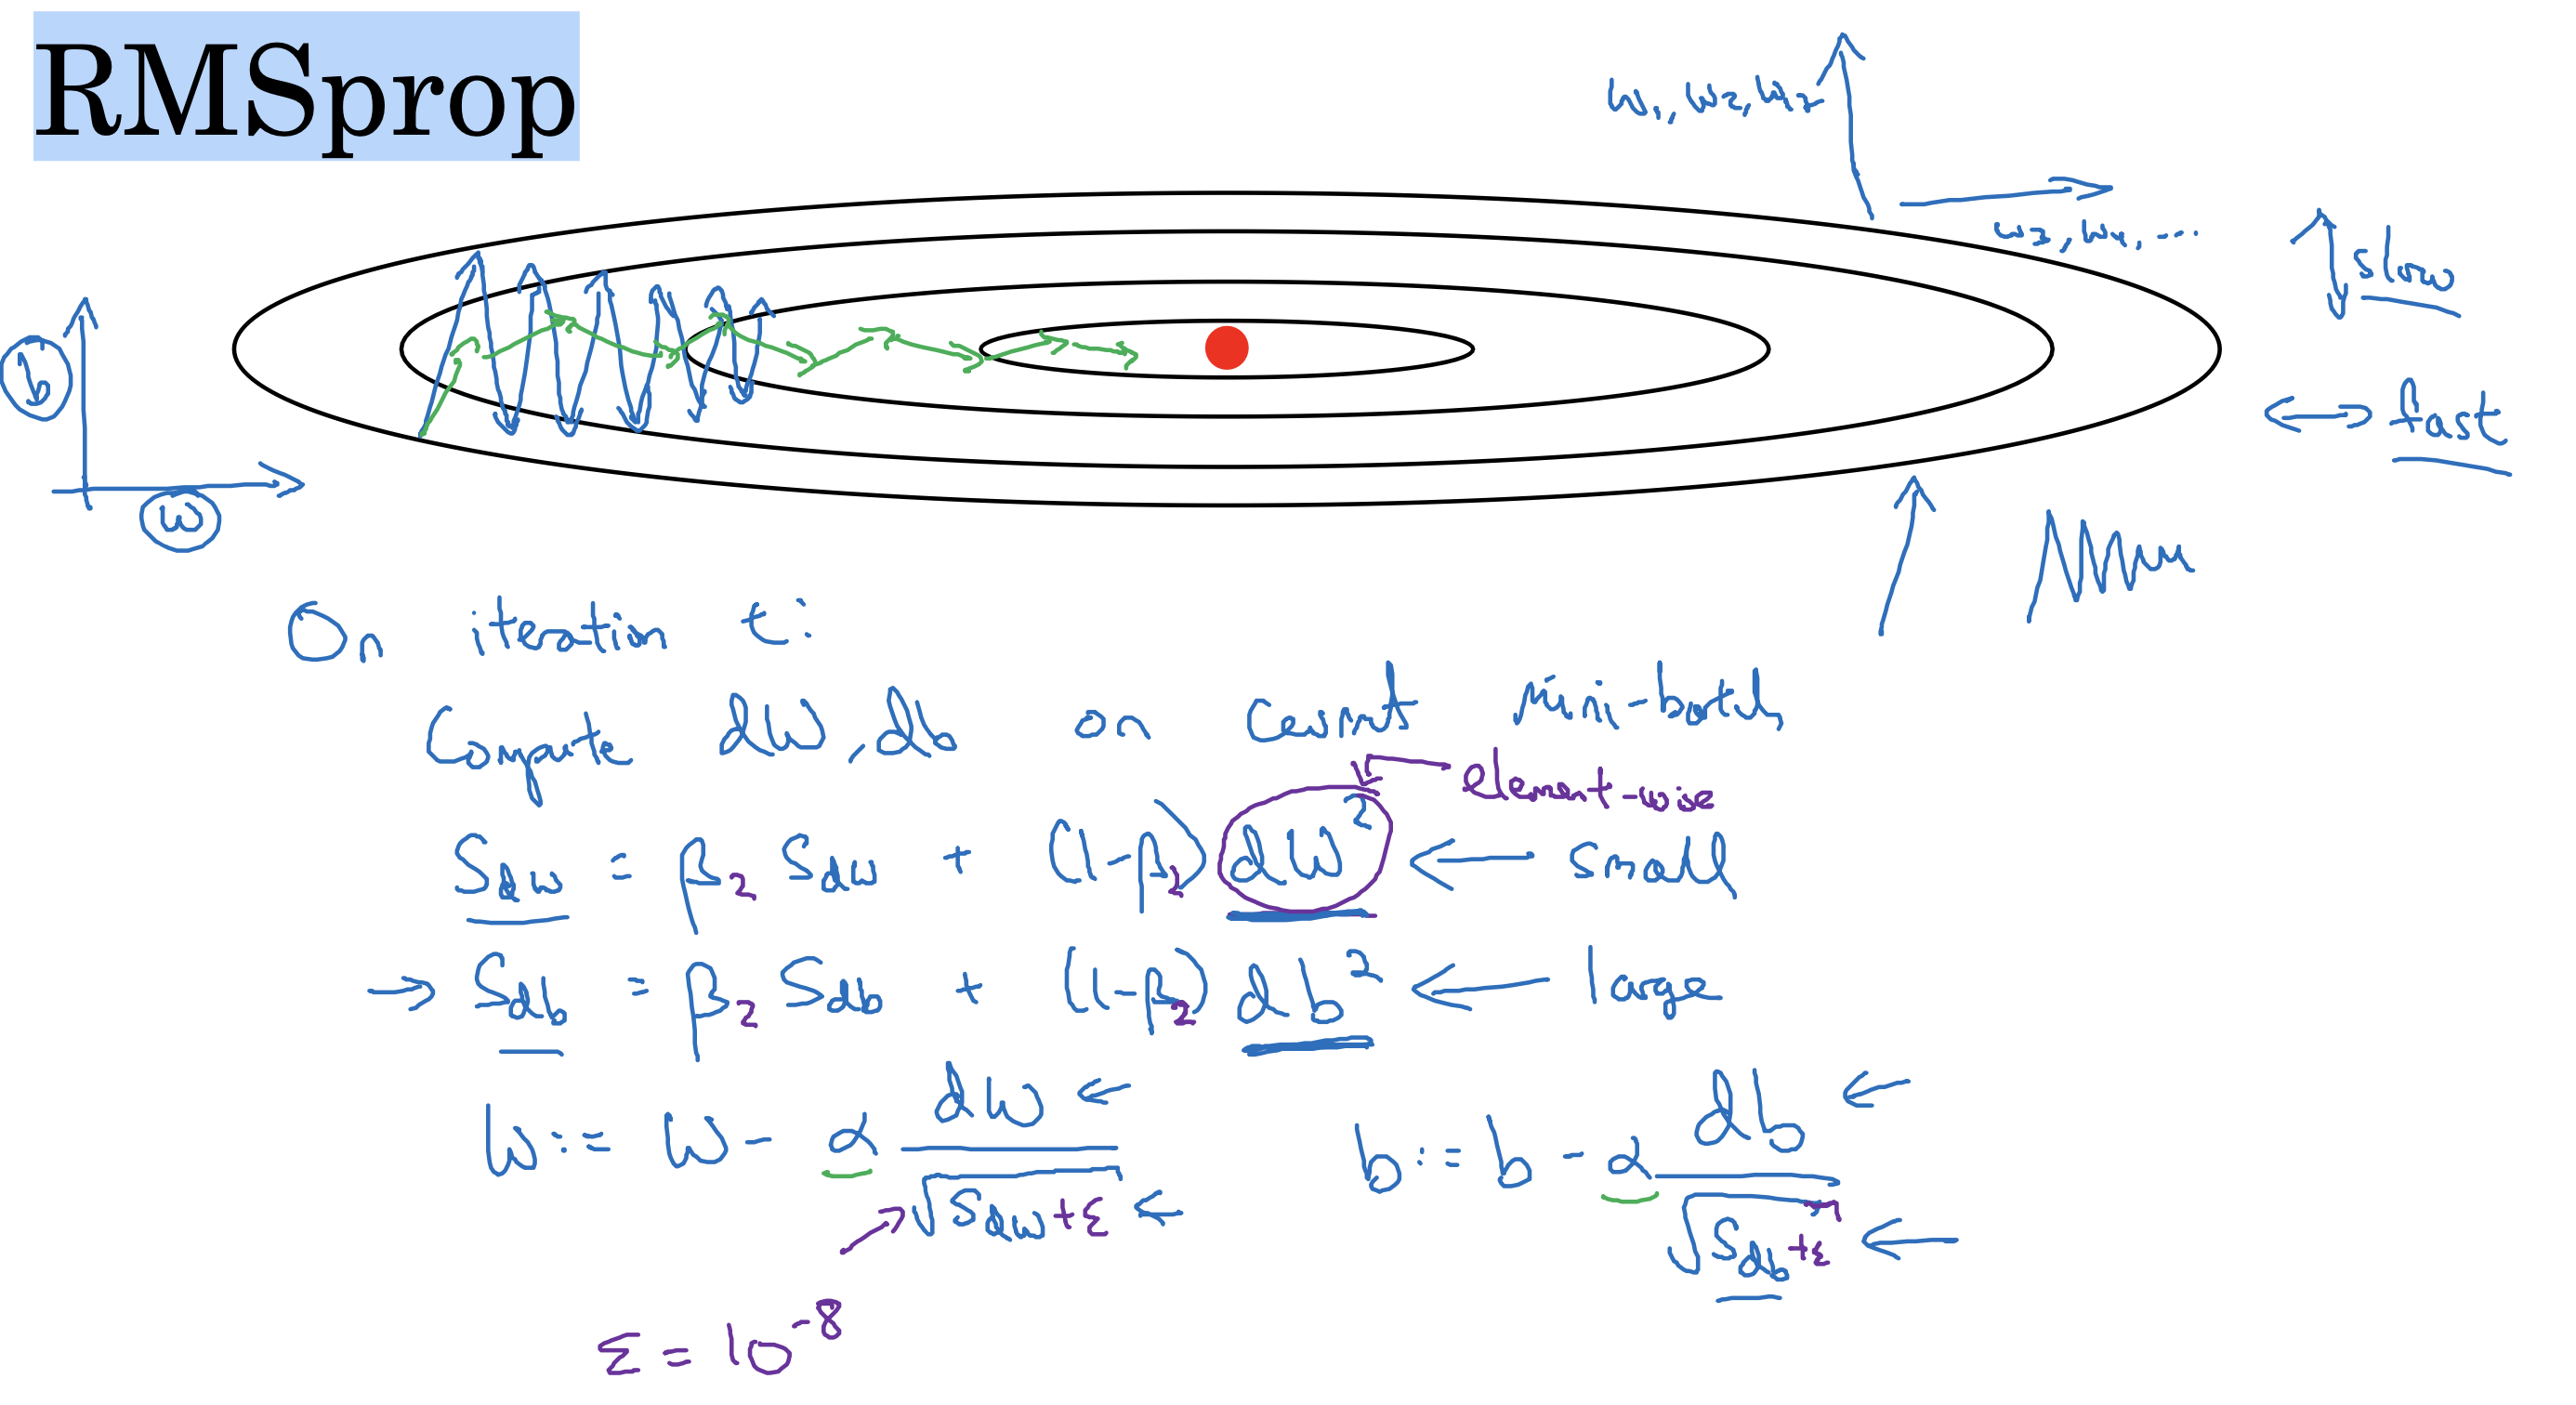 RMSprop
w₁, w₂, w₁₇
w₃, w₄, ...
slow
fast
b
w
On iteration t:
Compute dW, db on current mini-batch
element-wise
S_dw = β₂ S_dw + (1-β₂) dW² ← small
→ S_db = β₂ S_db + (1-β₂) db² ← large
W := W - α dW / √(S_dw + ε) ←
b := b - α db / √(S_db + ε) ←
ε = 10⁻⁸